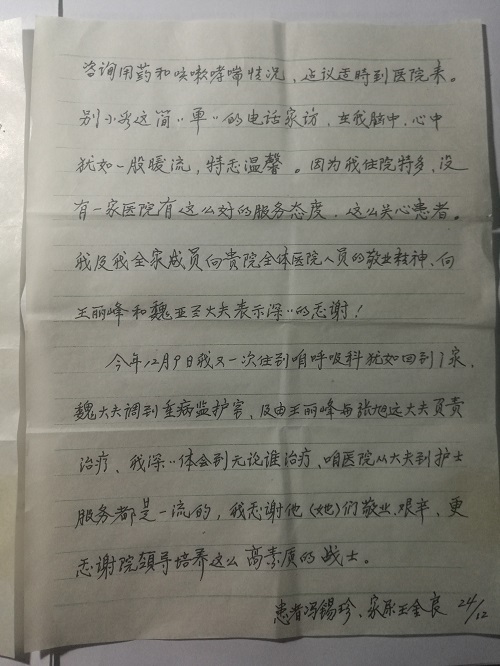 咨询用药和咳嗽哮喘情况，建议适时到医院来。
别小看这简"单"的电话家访，在我脑中、心中
犹如一股暖流，特感温馨。因为我住院特多，没
有一家医院有这么好的服务态度，这么关心患者。
我及我全家成员向贵院全体医院人员的敬业精神、向
王丽峰和魏亚 大夫表示深〃的感谢！
今年12月9日我又一次住到咱呼吸科犹如回到了家，
魏大夫调到重病监护室，及由王丽峰与张旭这大夫负责
治疗、我深〃体会到无论谁治疗、咱医院从大夫到护士
服务都是一流的，我感谢他(她)们敬业、艰辛，更
感谢院领导培养这么高素质的战士。
患者冯锡珍、家属王全良 24/12